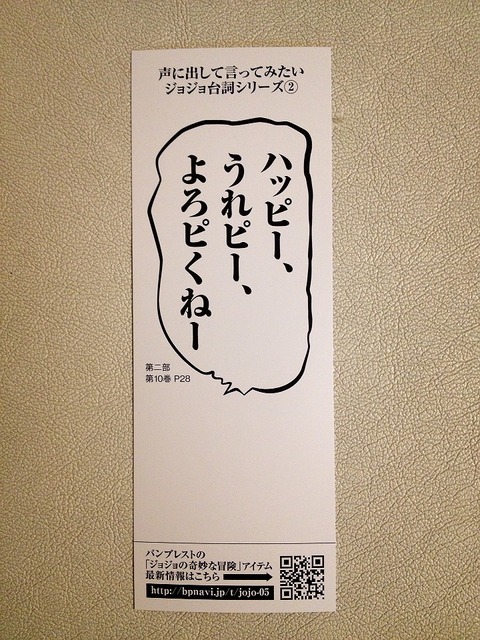 声に出して言ってみたい
ジョジョ台詞シリーズ②
ハッピー、
うれピー、
よろピくねー
第二部
第10巻 P28
バンプレストの
「ジョジョの奇妙な冒険」アイテム
最新情報はこちら
http://bpnavi.jp/t/jojo-05